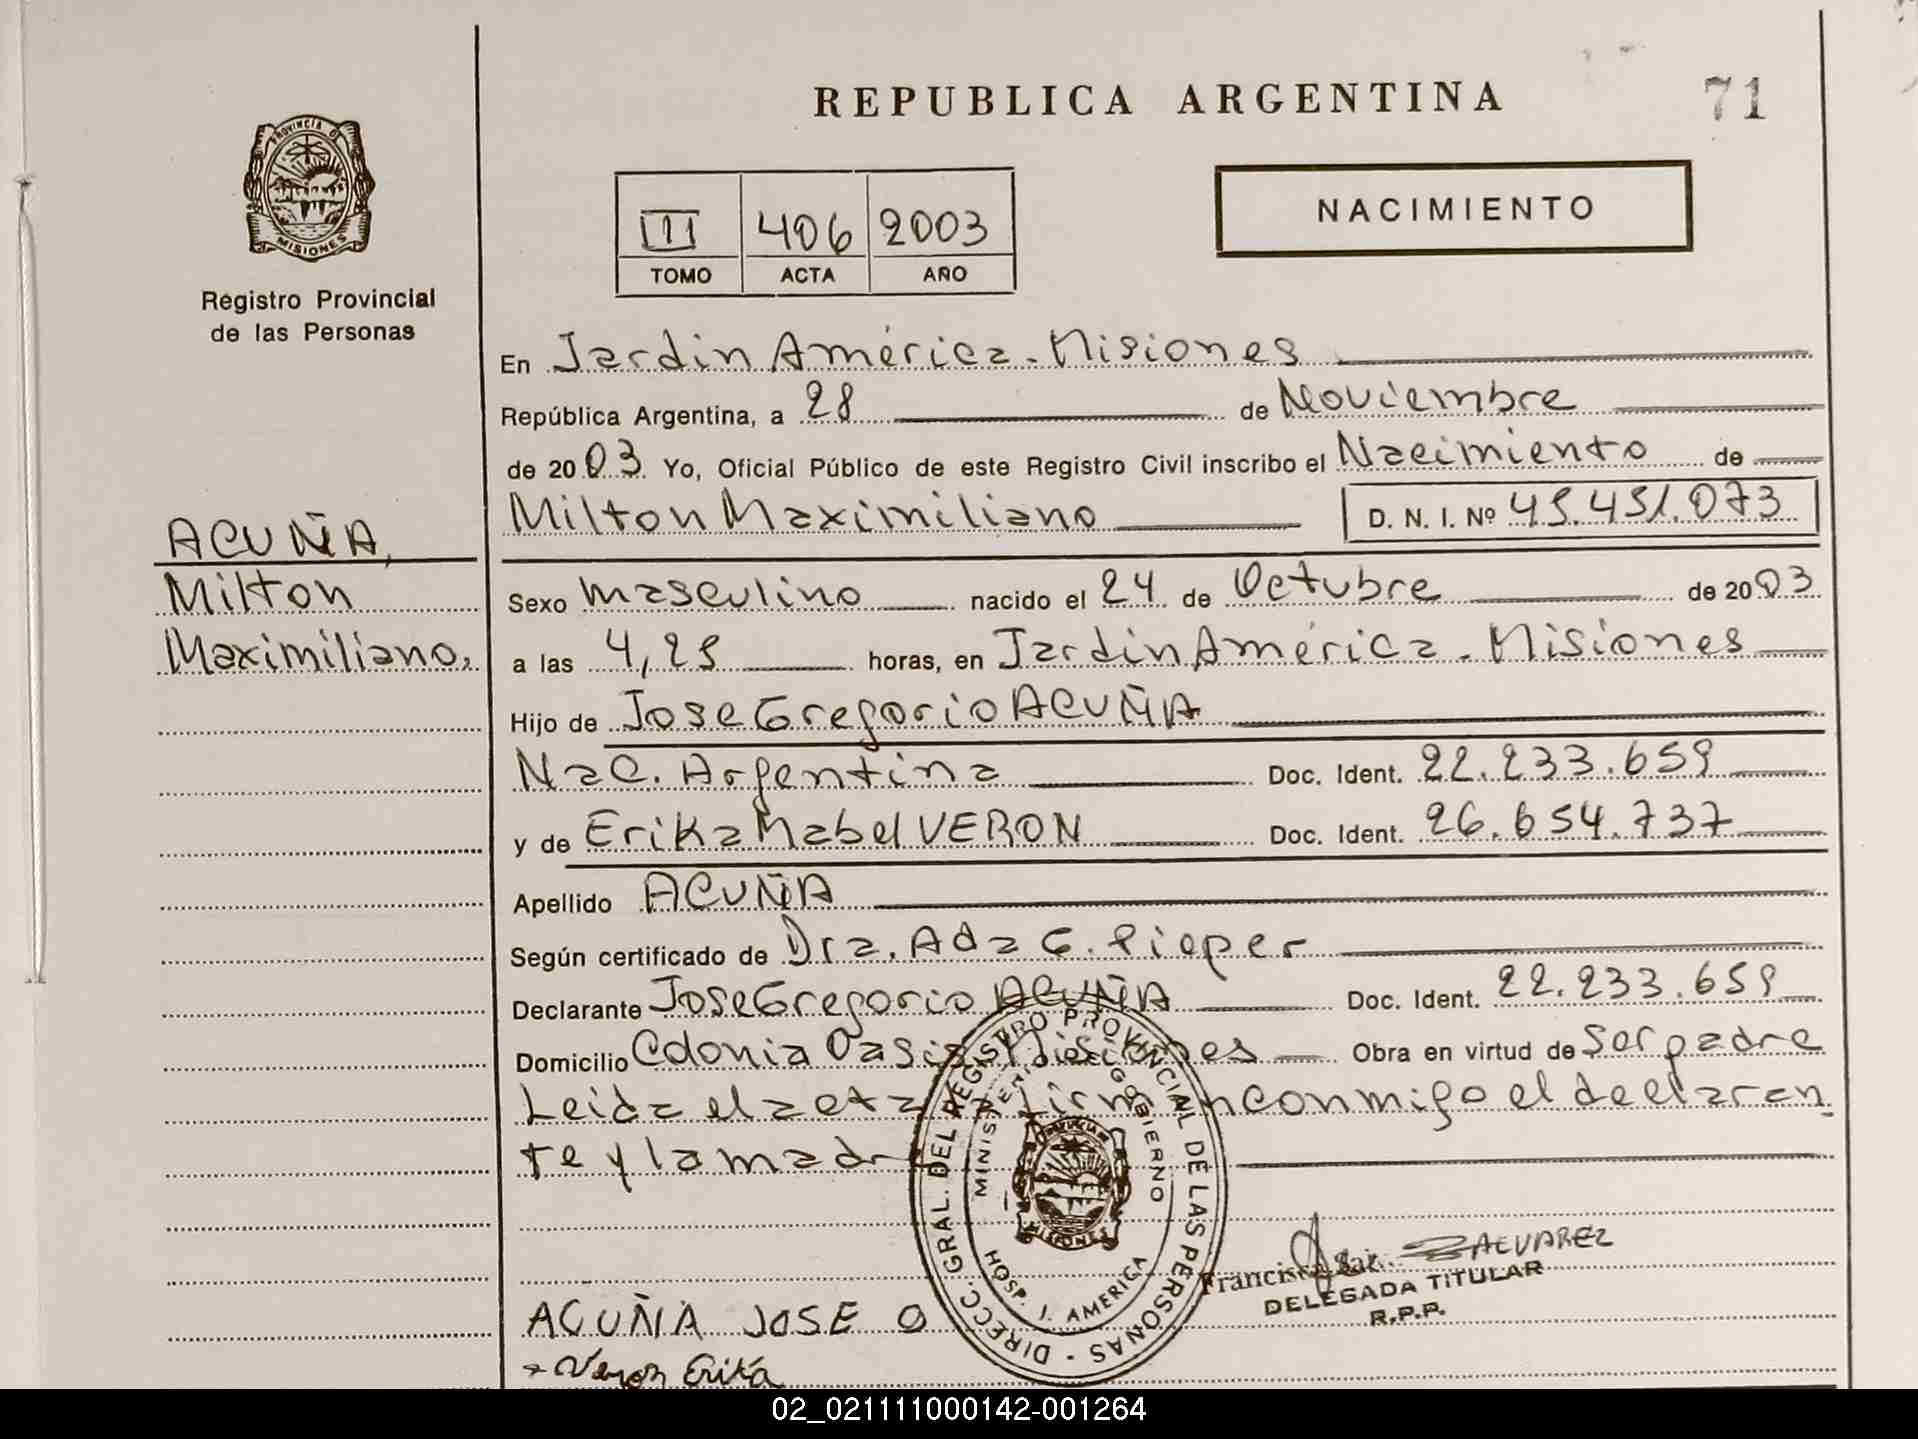 REPUBLICA ARGENTINA
71
PROVINCIA DE
MISIONES
Registro Provincial
de las Personas
II 406 2003
TOMO ACTA AÑO
NACIMIENTO
En Jardin América - Misiones
República Argentina, a 28 de Noviembre
de 2003 Yo, Oficial Público de este Registro Civil inscribo el Nacimiento de
Milton Maximiliano D. N. I. Nº 45.451.073
ACUÑA,
Milton
Maximiliano,
Sexo masculino nacido el 24 de Octubre de 2003
a las 4,25 horas, en Jardin América - Misiones
Hijo de Jose Gregorio ACUÑA
Nac. Argentina Doc. Ident. 22.233.659
y de Erika Mabel VERON Doc. Ident. 26.654.737
Apellido ACUÑA
Según certificado de Dra. Ada G. Pieper
Declarante Jose Gregorio ACUÑA Doc. Ident. 22.233.659
Domicilio Colonia Oasis Misiones Obra en virtud de ser padre
Leida el acta firman conmigo el declaran
te y la madre
DIRECC. GRAL. DEL REGISTRO PROVINCIAL DE LAS PERSONAS -
MINISTERIO GOBIERNO
MISIONES
HOSP. J. AMERICA
ALVAREZ
DELEGADA TITULAR
R.P.P.
ACUÑA JOSE G
Veron Erika
02_021111000142-001264